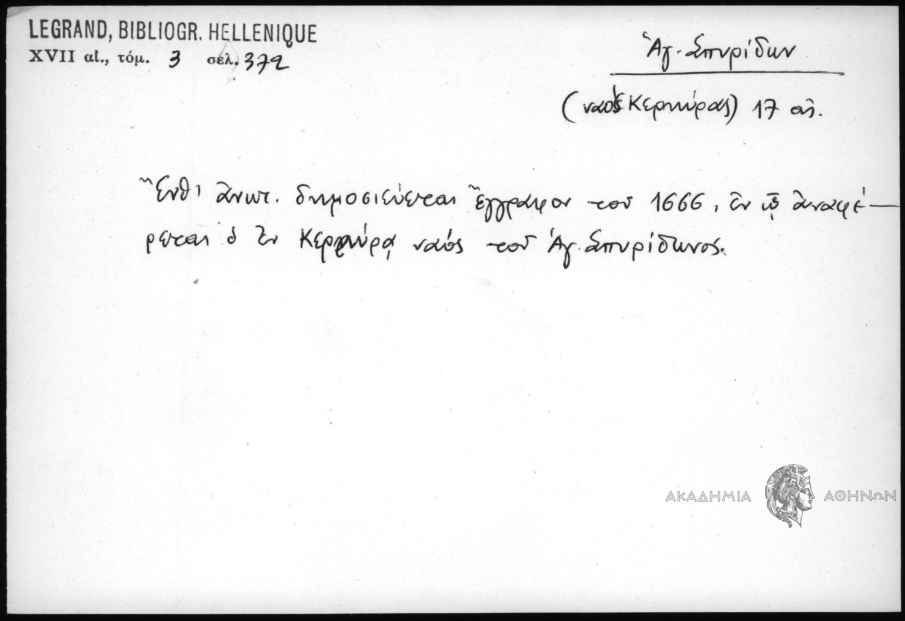 LEGRAND, BIBLIOGR. HELLENIQUE
XVII αἰ., τόμ. 3 σέλ. 372
Ἁγ. Σπυρίδων
(ναὸς Κερκύρας) 17 αἰ.
Ἔνθ' ἀνωτ. δημοσιεύεται ἔγγραφον τοῦ 1666, ἐν ᾧ ἀναφέ-
ρεται ὁ ἐν Κερκύρᾳ ναός τοῦ Ἁγ. Σπυρίδωνος.
ΑΚΑΔΗΜΙΑ ΑΘΗΝΩΝ